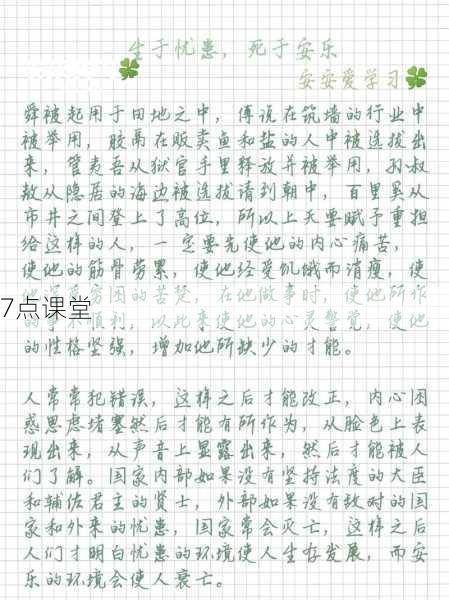 生于忧患，死于安乐
安安爱学习
舜被起用于田地之中，傅说在筑墙的行业中
被举用，胶鬲在贩卖鱼和盐的人中被选拔出
来，管夷吾从狱官手里释放并被举用，孙叔
敖从隐居的海边被选拔请到朝中，百里奚从
市井之间登上了高位，所以上天要赋予重担
给这样的人，一定要先使他的内心痛苦，
使他的筋骨劳累，使他经受饥饿而消瘦，使
困的苦楚，在他做事时，使他所作
7点课堂
顺利，以此来使他的心灵警觉，使他
的性格坚强，增加他所缺少的才能。
人常常犯错误，这样之后才能改正，内心困
惑思虑堵塞然后才能有所作为，从脸色上表
现出来，从声音上显露出来，然后才能被人
们了解。国家内部如果没有坚持法度的大臣
和辅佐君主的贤士，外部如果没有敌对的国
家和外来的忧患，国家常会灭亡，这样之后
人们才明白忧患的环境使人生存发展，而安
乐的环境会使人衰亡。